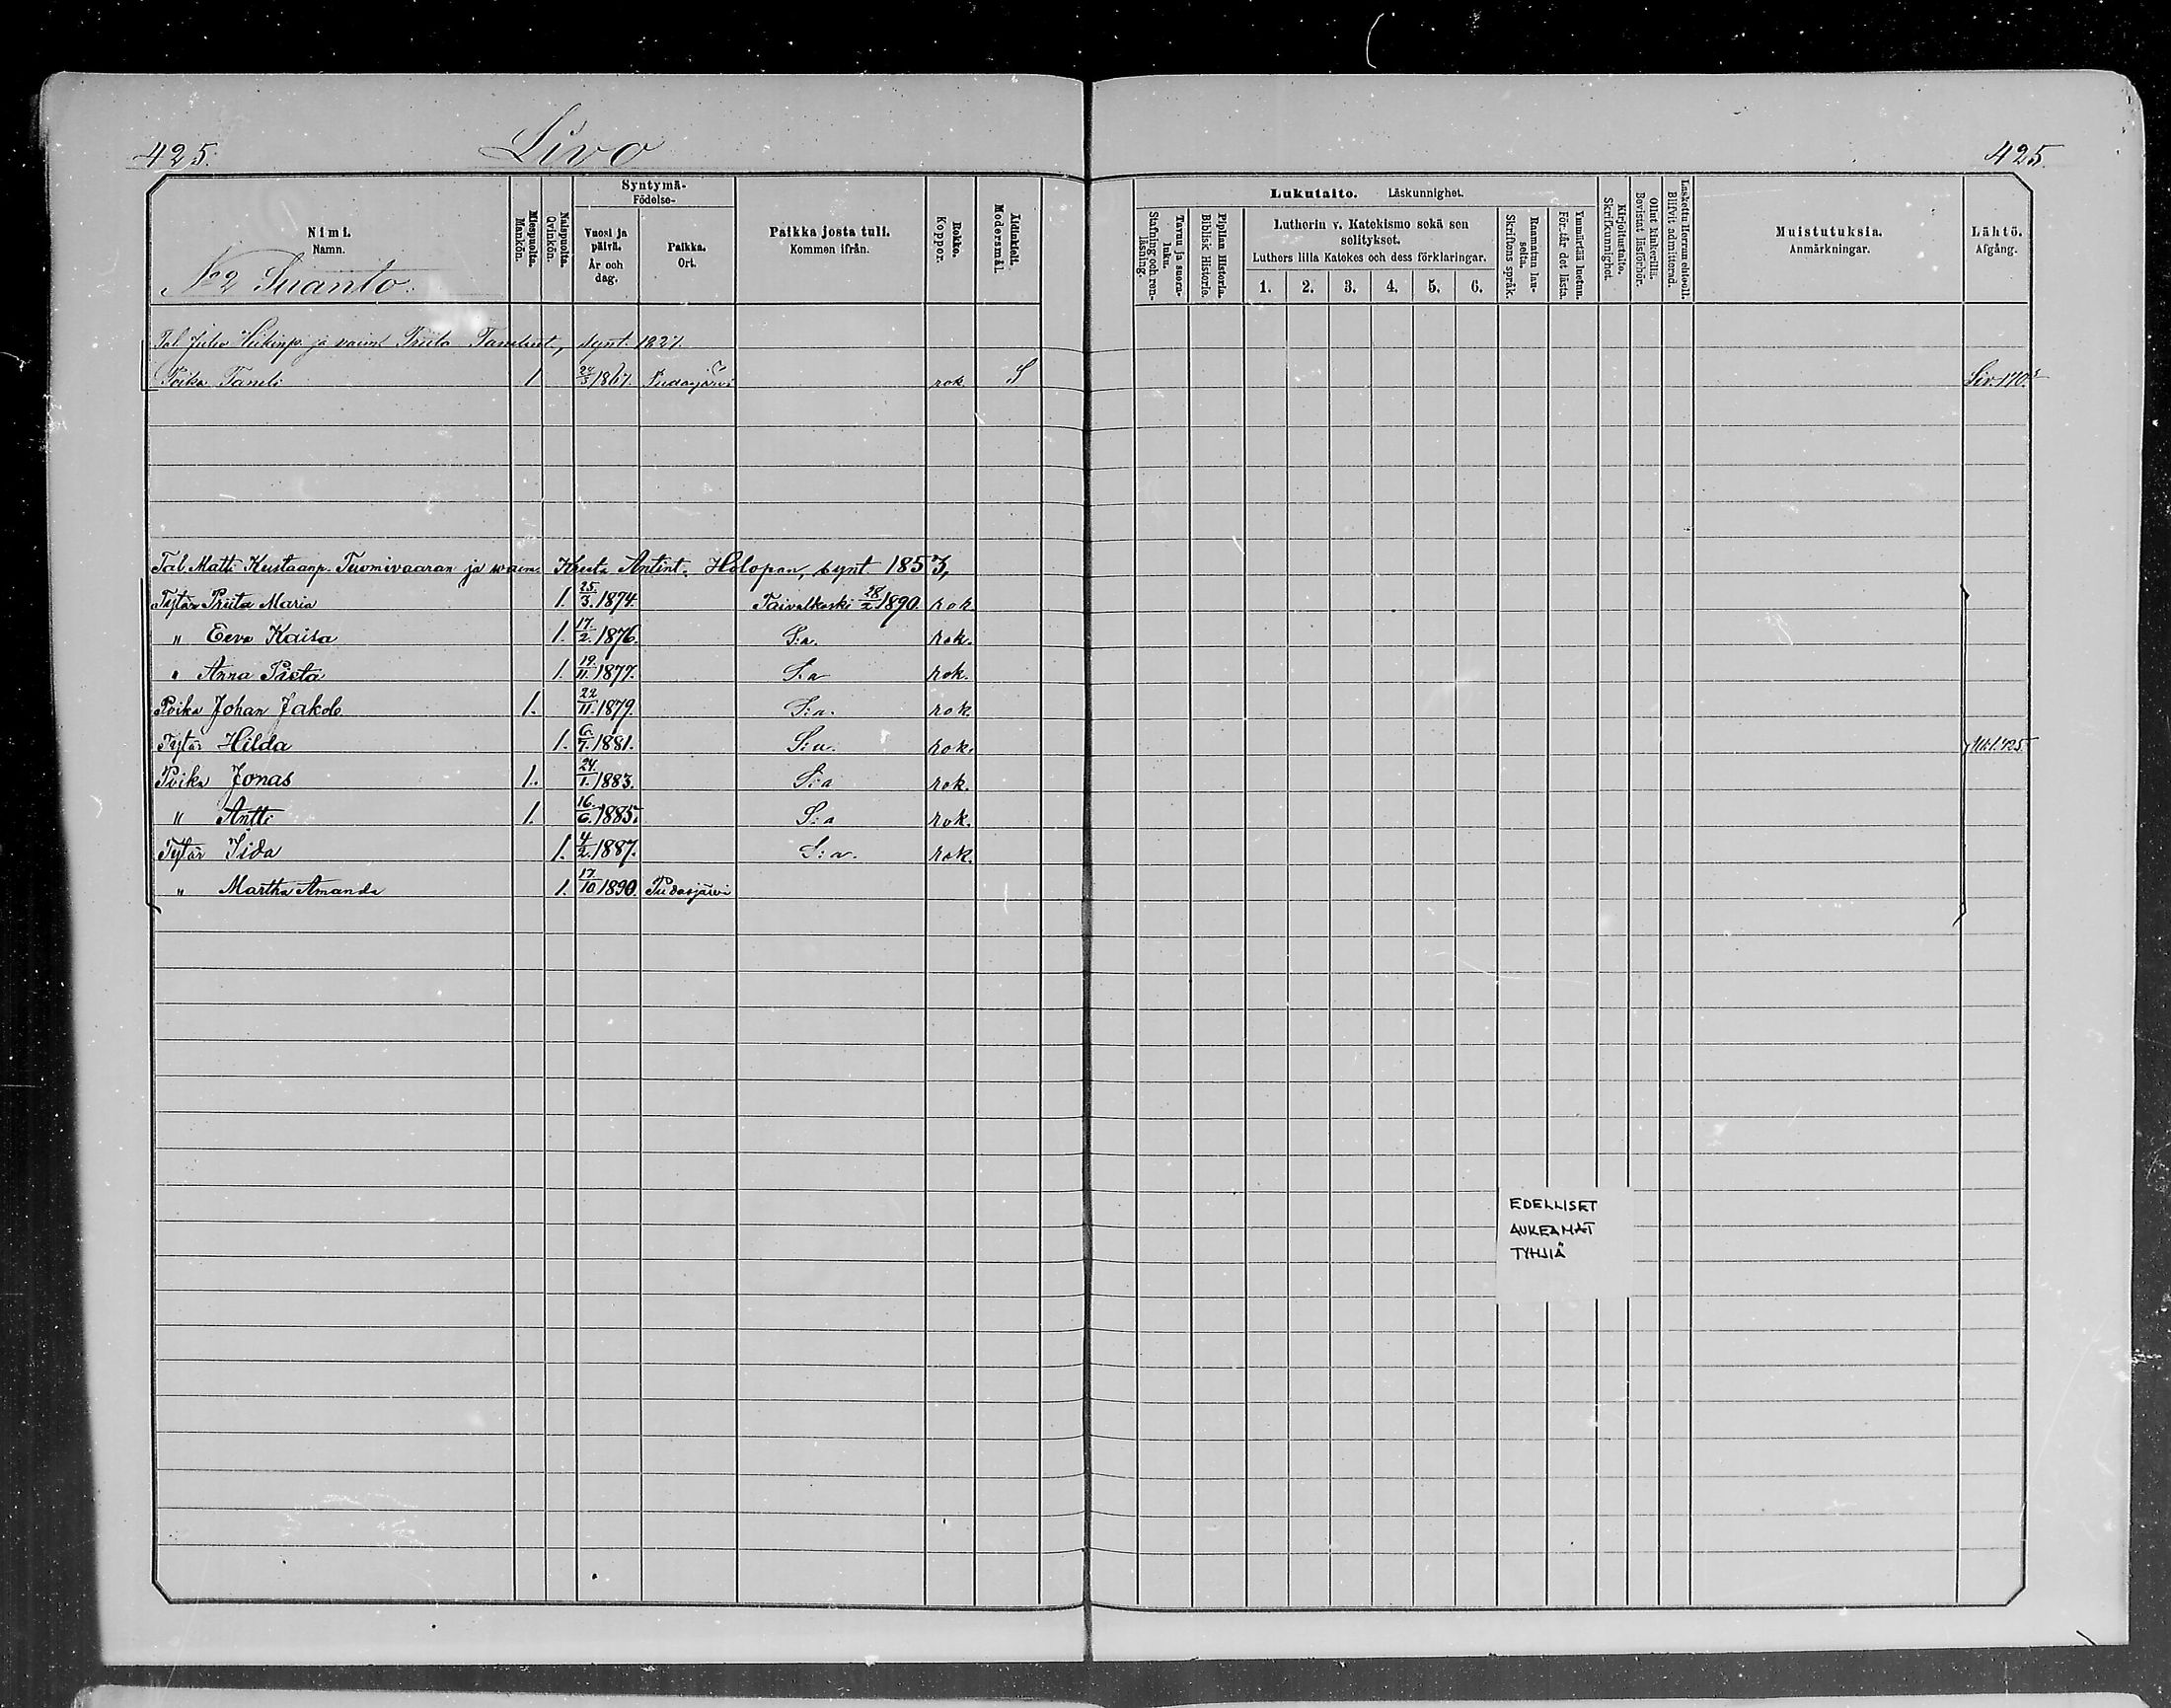 425. Livo 425.
Nimi. Namn.
Miespuolia. Mankön.
Naispuolia. Qvinkön.
Syntymä- Födelse-
Vuosi ja päivä. År och dag.
Paikka. Ort.
Paikka josta tuli. Kommen ifrån.
Rokko. Koppor.
Äidinkieli. Modersmål.
Lukutaito. Läskunnighet.
Tavuu ja suora-luku. Stafning och ren-läsning.
Piplian Historia. Biblisk Historie.
Lutherin v. Katekismo sekä sen selitykset.
Luthers lilla Katekes och dess förklaringar.
1. 2. 3. 4. 5. 6.
Raamatun lau-seita. Skriftens språk.
Ymmärtää luetun. Förstår det lästa.
Kirjoitustaito. Skrifkunnighet.
Ollut kinkerillä. Bevistat läsförhör.
Laskettu Herran ehtooll. Blifvit admitterad.
Muistutuksia. Anmärkningar.
Lähtö. Afgång.
No 2 Suanto.
Tal. Juho Heikinp. ja vaim. Priita Tanelint., synt. 1827.
Poika Taneli 1 24/3 1867. Pudasjärvi rok S Liv. 170.
Tal Matti Kustaanp. Tuomivaaran ja waim. Kreeta Antint. Holopan, synt. 1853,
Tytär Priita Maria 1. 25./3. 1874. Taivalkoski 28/2 1890. rok
" Eeva Kaisa 1. 17./2. 1876. S:a. rok.
" Anna Pieta 1. 19./11. 1877. S:a rok.
Poika Johan Jakob 1. 22/11. 1879. S:a. rok.
Tytär Hilda 1. 6./7. 1881. S:a. rok. 425
Poika Jonas 1. 24./1. 1883. S:a rok.
" Antti 1. 16./6. 1885. S:a rok.
Tytär Iida 1. 4/2. 1887. S:a. rok.
" Martha Amanda 1. 17./10 1890. Pudasjärvi
EDELLISET
AUKEAMAT
TYHJIÄ